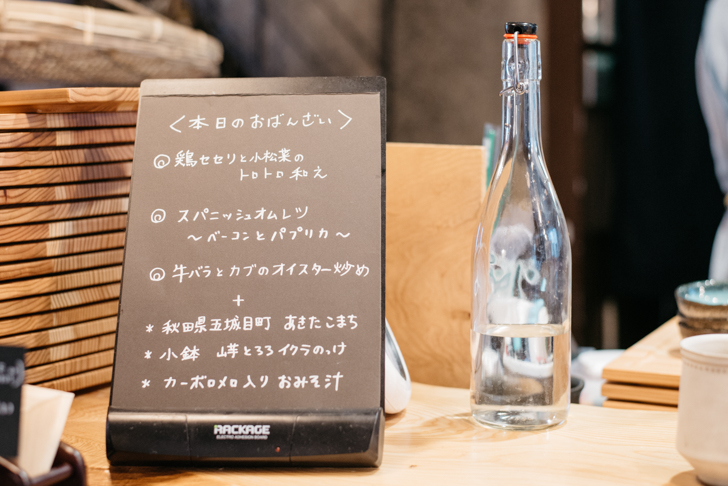 〈本日のおばんざい〉
◎ 鶏セセリと小松菜の
トロトロ和え
◎ スパニッシュオムレツ
〜ベーコンとパプリカ〜
◎ 牛バラとカブのオイスター炒め
+
* 秋田県五城目町 あきたこまち
* 小鉢 山芋とろろイクラのっけ
* カーボロメロ入り おみそ汁
RACKAGE
ELECTRO ADHESION BOARD